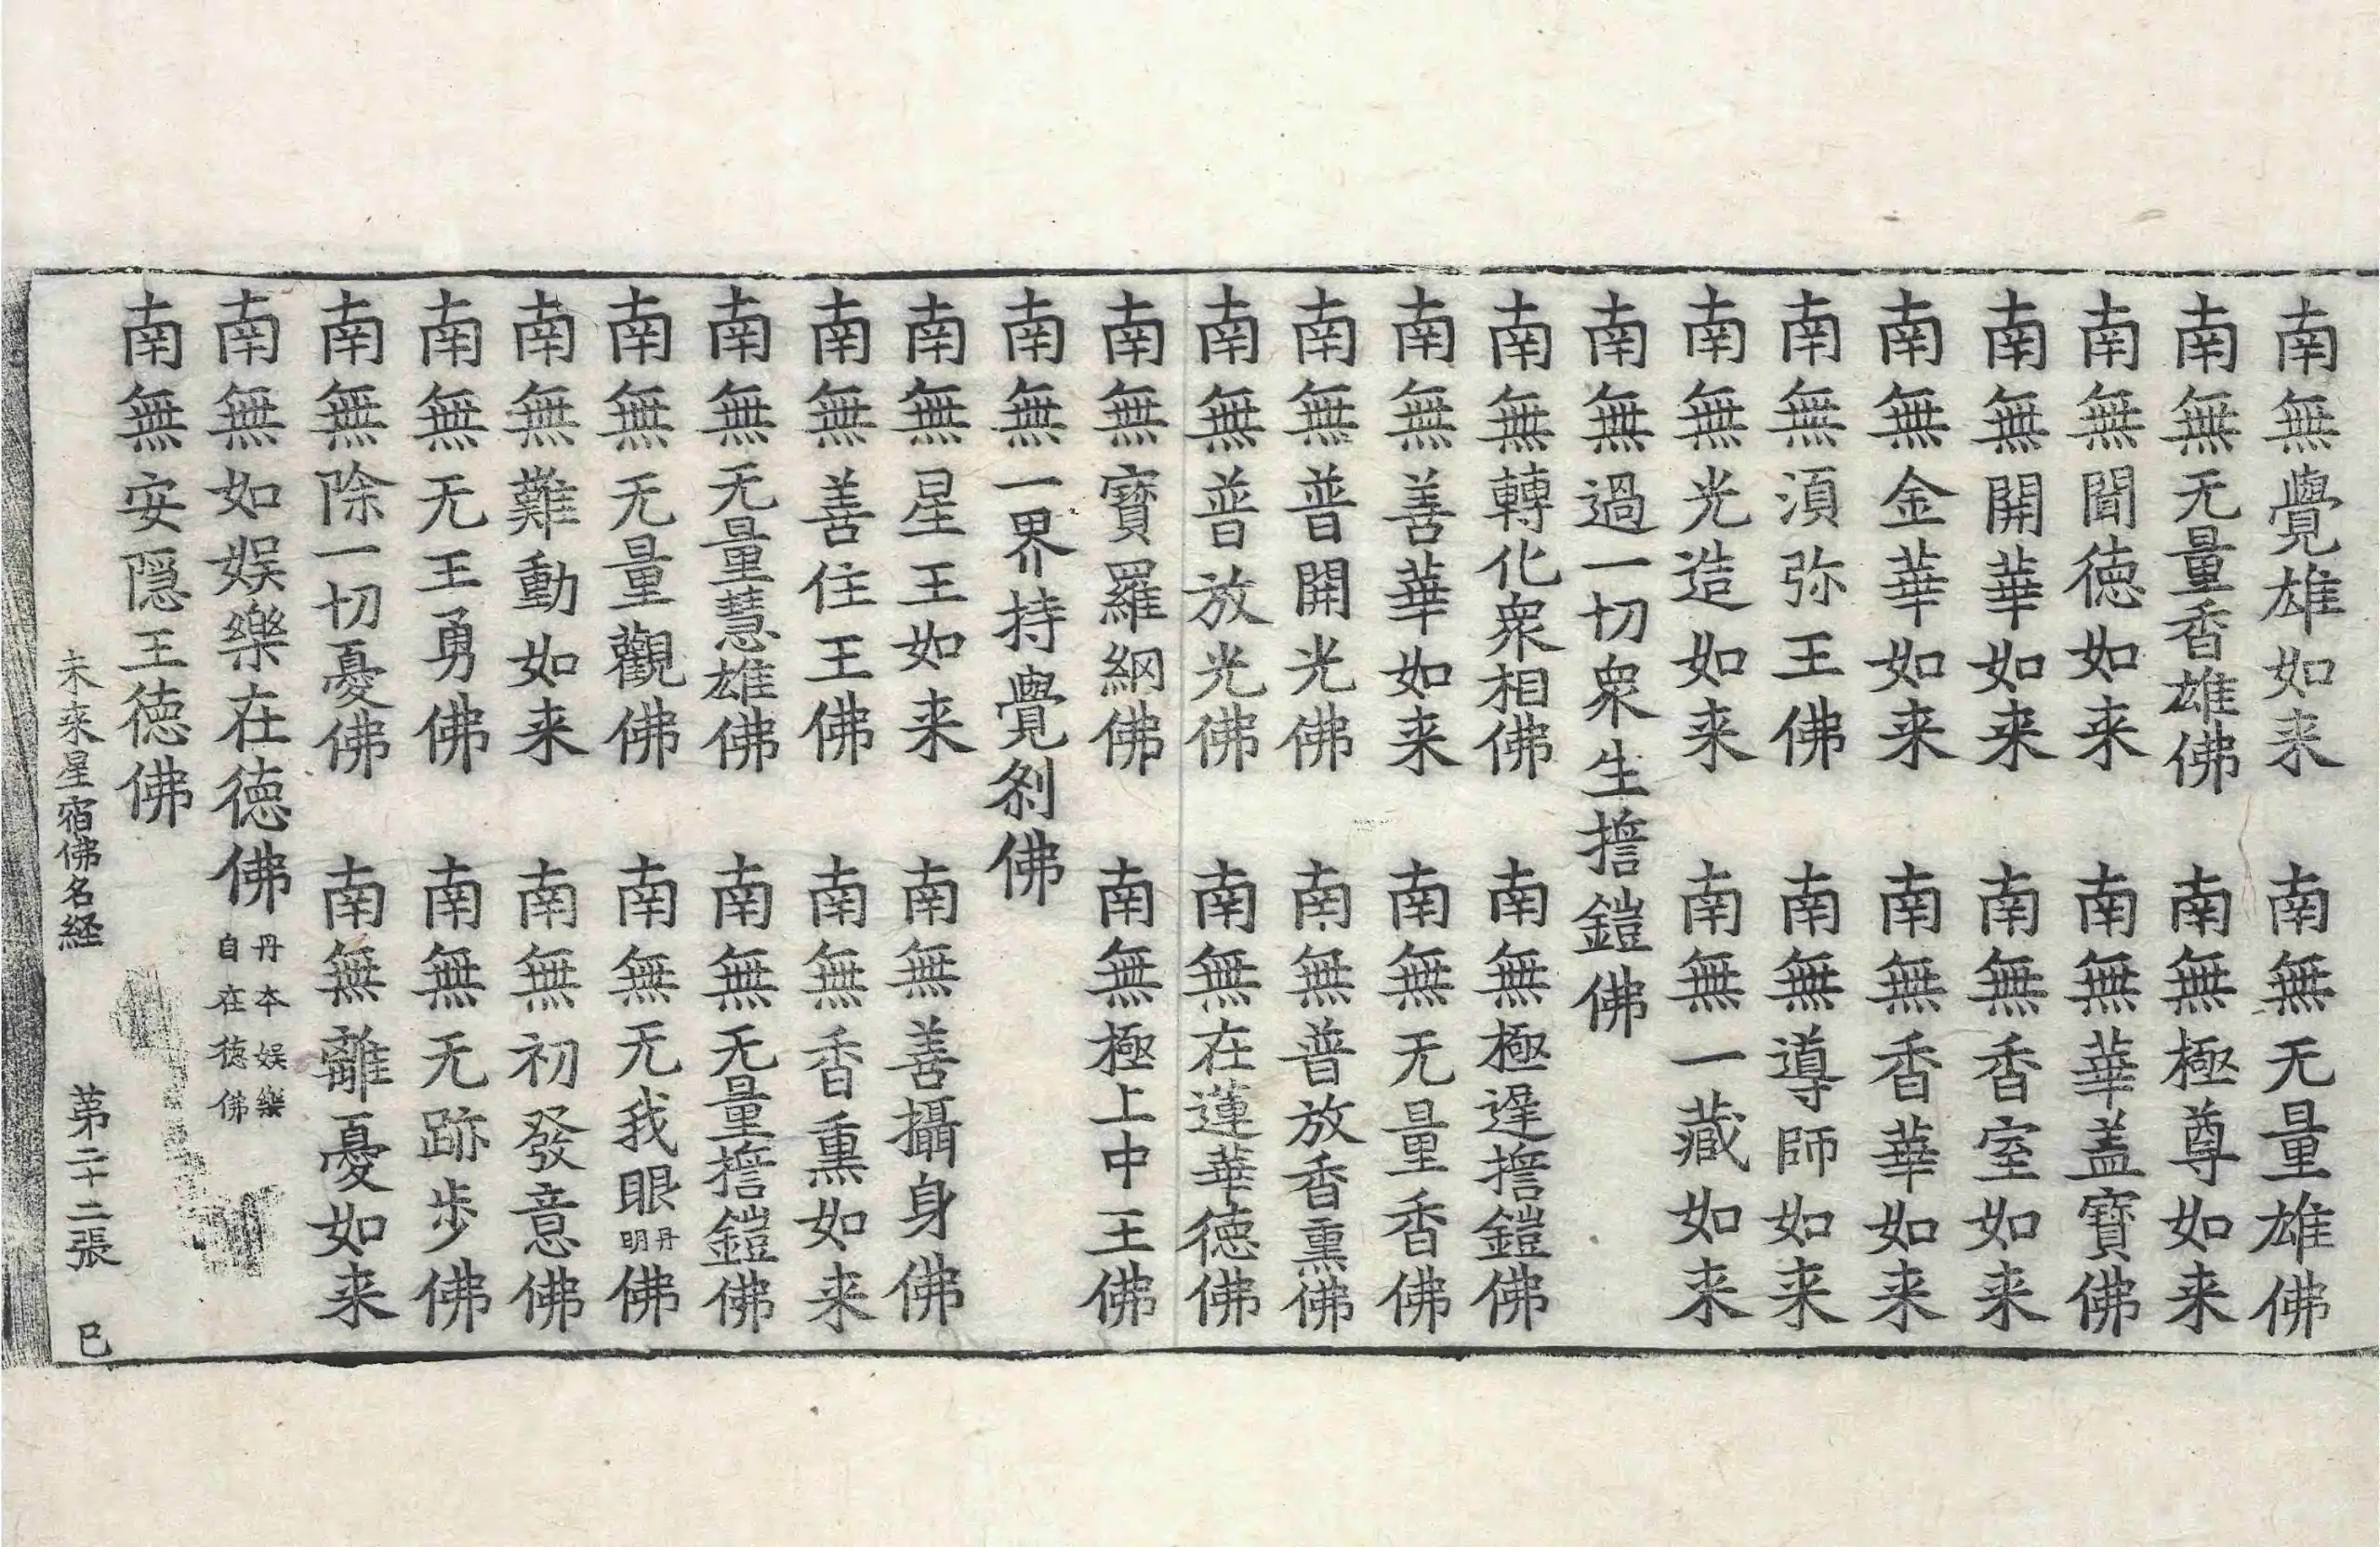 南無覺雄如来 南無无量雄佛
南無无量香雄佛 南無極尊如来
南無聞德如来 南無華盖寶佛
南無開華如来 南無香室如来
南無金華如来 南無香華如来
南無湏弥王佛 南無導師如来
南無光造如来 南無一藏如来
南無過一切衆生擔鎧佛
南無轉化衆相佛 南無極遲擔鎧佛
南無善華如来 南無无量香佛
南無普開光佛 南無普放香熏佛
南無普放光佛 南無在蓮華德佛
南無寶羅網佛 南無極上中王佛
南無一界持覺刹佛
南無星王如来 南無善攝身佛
南無善住王佛 南無香熏如来
南無无量慧雄佛 南無无量擔鎧佛
南無无量觀佛 南無无我眼丹明佛
南無難動如来 南無初發意佛
南無无王勇佛 南無无跡步佛
南無除一切憂佛 南無離憂如来
南無如娱樂在德佛 丹本娱樂自在德佛
南無安隠王德佛
未来星宿佛名経 第二十二張 巳